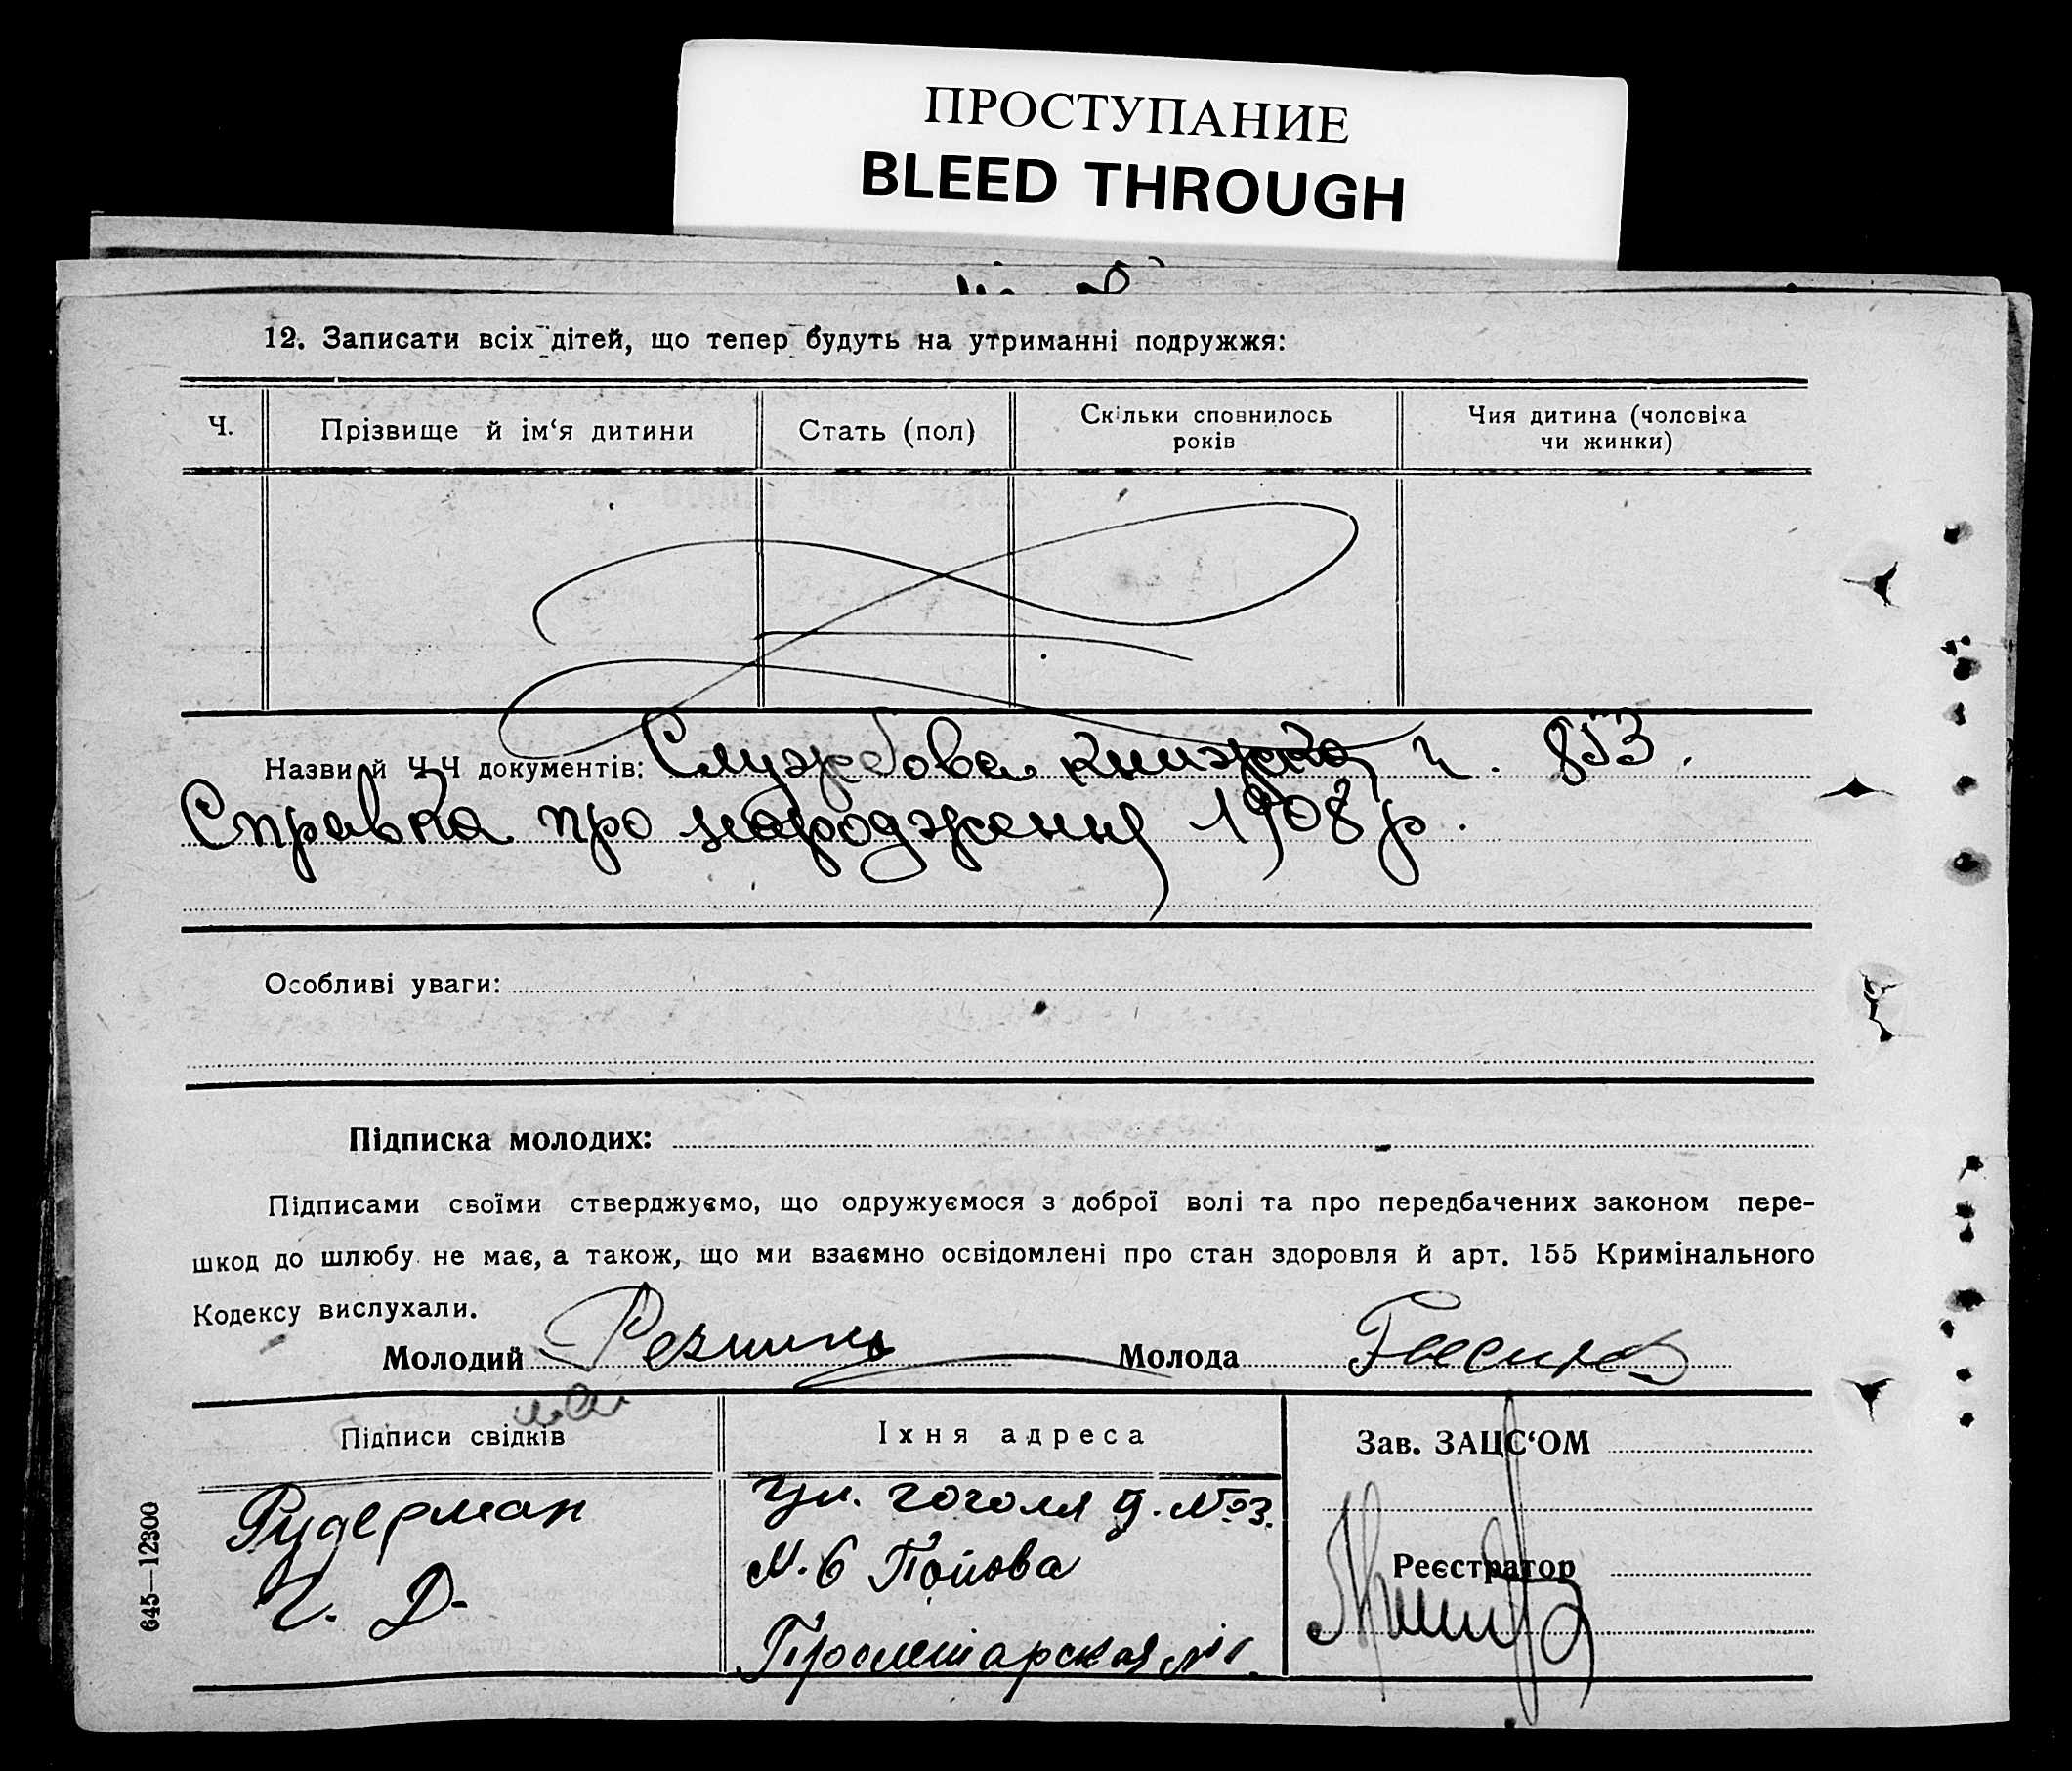 ПРОСТУПАНИЕ
BLEED THROUGH
12. Записати всіх дітей, що тепер будуть на утриманні подружжя:
Ч.
Прізвище й ім‘я дитини
Стать (пол)
Скільки сповнилось
років
Чия дитина (чоловіка
чи жинки)
Назви й Ч.Ч документів: Службова книжка ч. 853.
Справка про народження 1908 р.
Особливі уваги:
Підписка молодих:
Підписами своїми стверджуємо, що одружуємося з доброї волі та про передбачених законом пере-
шкод до шлюбу не має, а також, що ми взаємно освідомлені про стан здоровля й арт. 155 Кримінального
Кодексу вислухали.
Молодий
Молода
Підписи свідків
Їхня адреса
Зав. ЗАЦС‘ОМ
Рудерман
Ул. Гоголя д. №3.
Реєстратор
Пролетарская №1.
645—12300